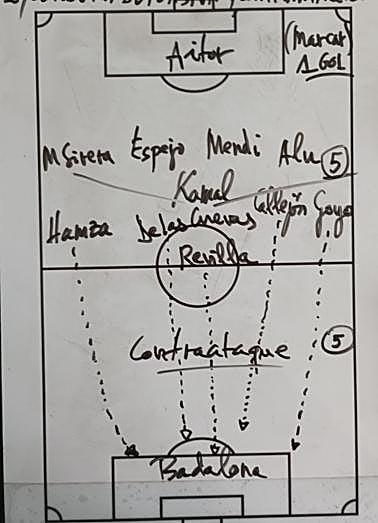 Aitor
(Marcar
1 GOL
M Sirera Espejo Mendi Alu 5
Kamal
Hamza De las Cuevas Callejón Goyo
Revilla
Contraataque 5
Badalona